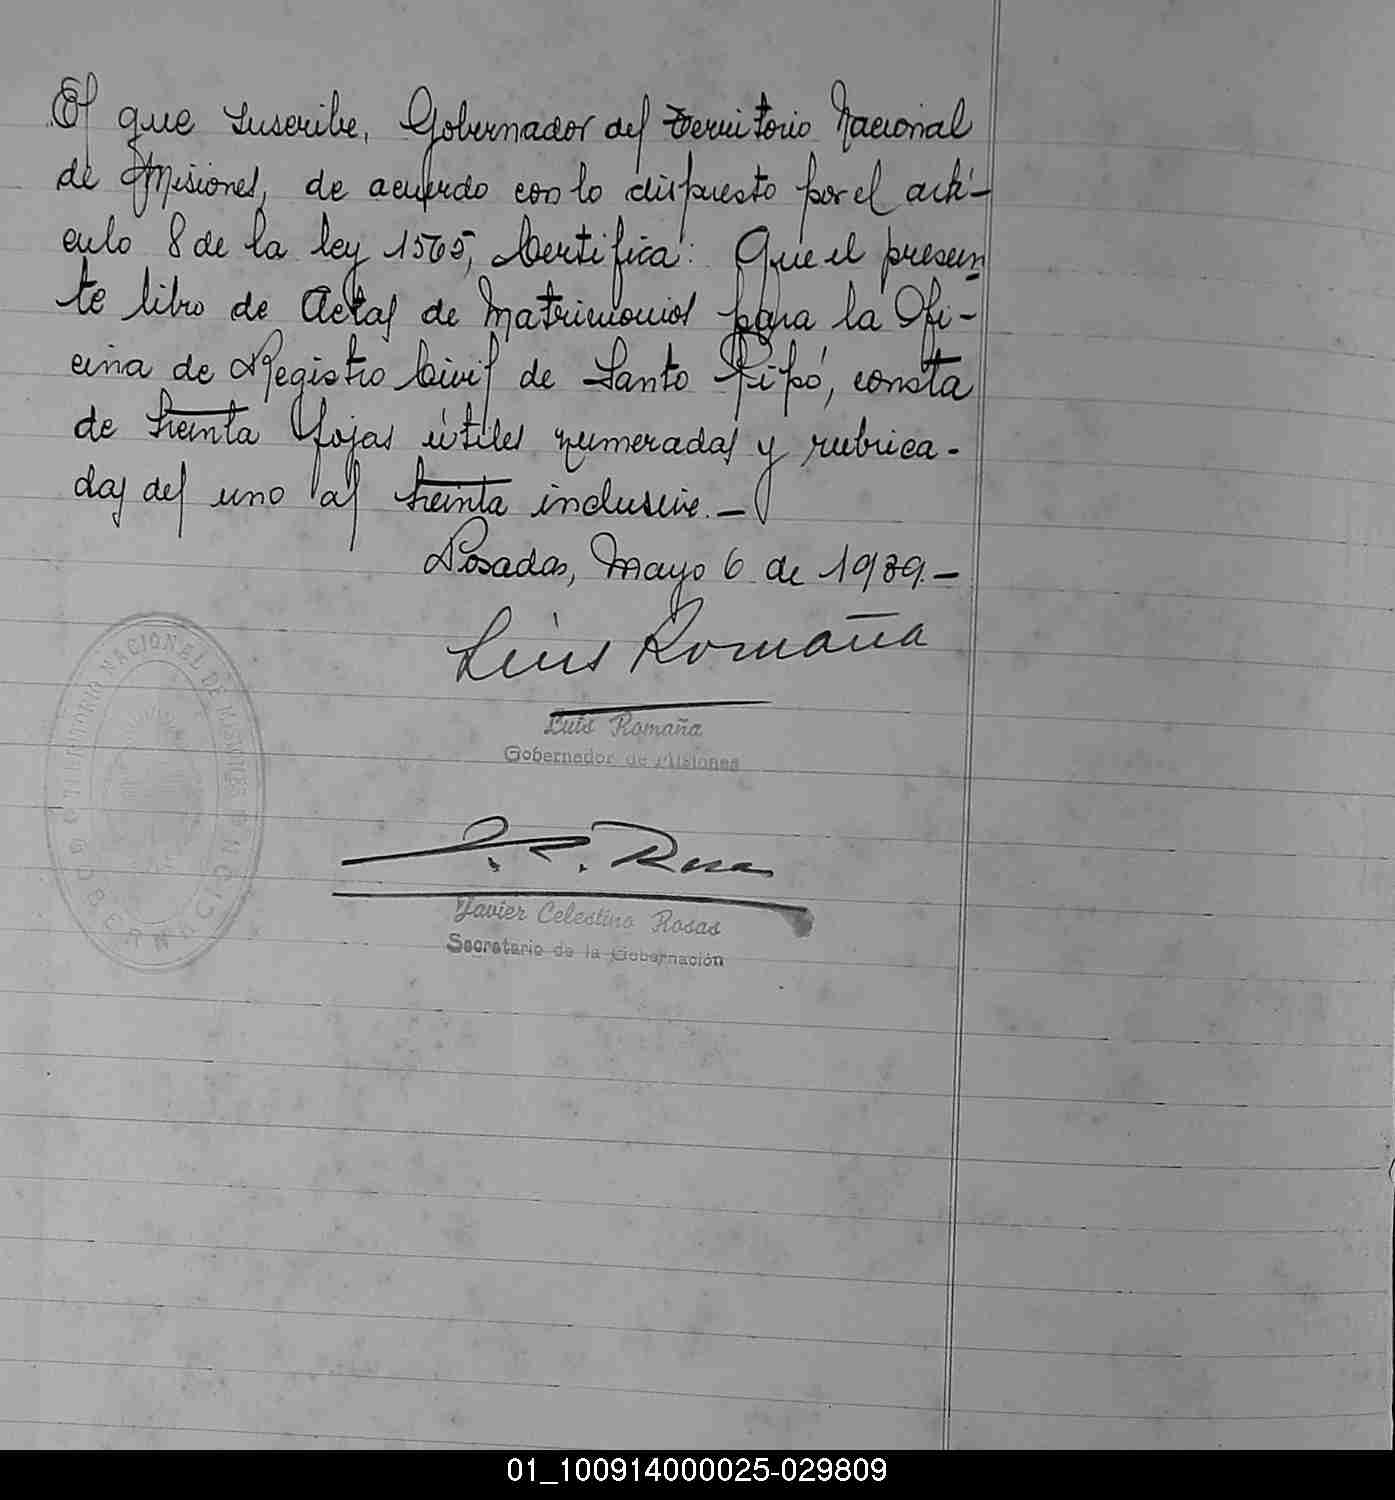 El que suscribe, Gobernador del Territorio Nacional
de Misiones, de acuerdo con lo dispuesto por el artí-
culo 8 de la ley 1565, Certifica: Que el presen
te libro de Actas de Matrimonios para la Ofi-
cina de Registro Civil de Santo Pipó, consta
de treinta fojas útiles numeradas y rubrica-
das del uno al treinta inclusive.-
Posadas, Mayo 6 de 1939.-
Luis Romaña
Luis Romaña
Gobernador de Misiones
J. C. Rosas
Javier Celestino Rosas
Secretario de la Gobernación
TERRITORIO NACIONAL DE MISIONES
GOBERNACION
01_100914000025-029809